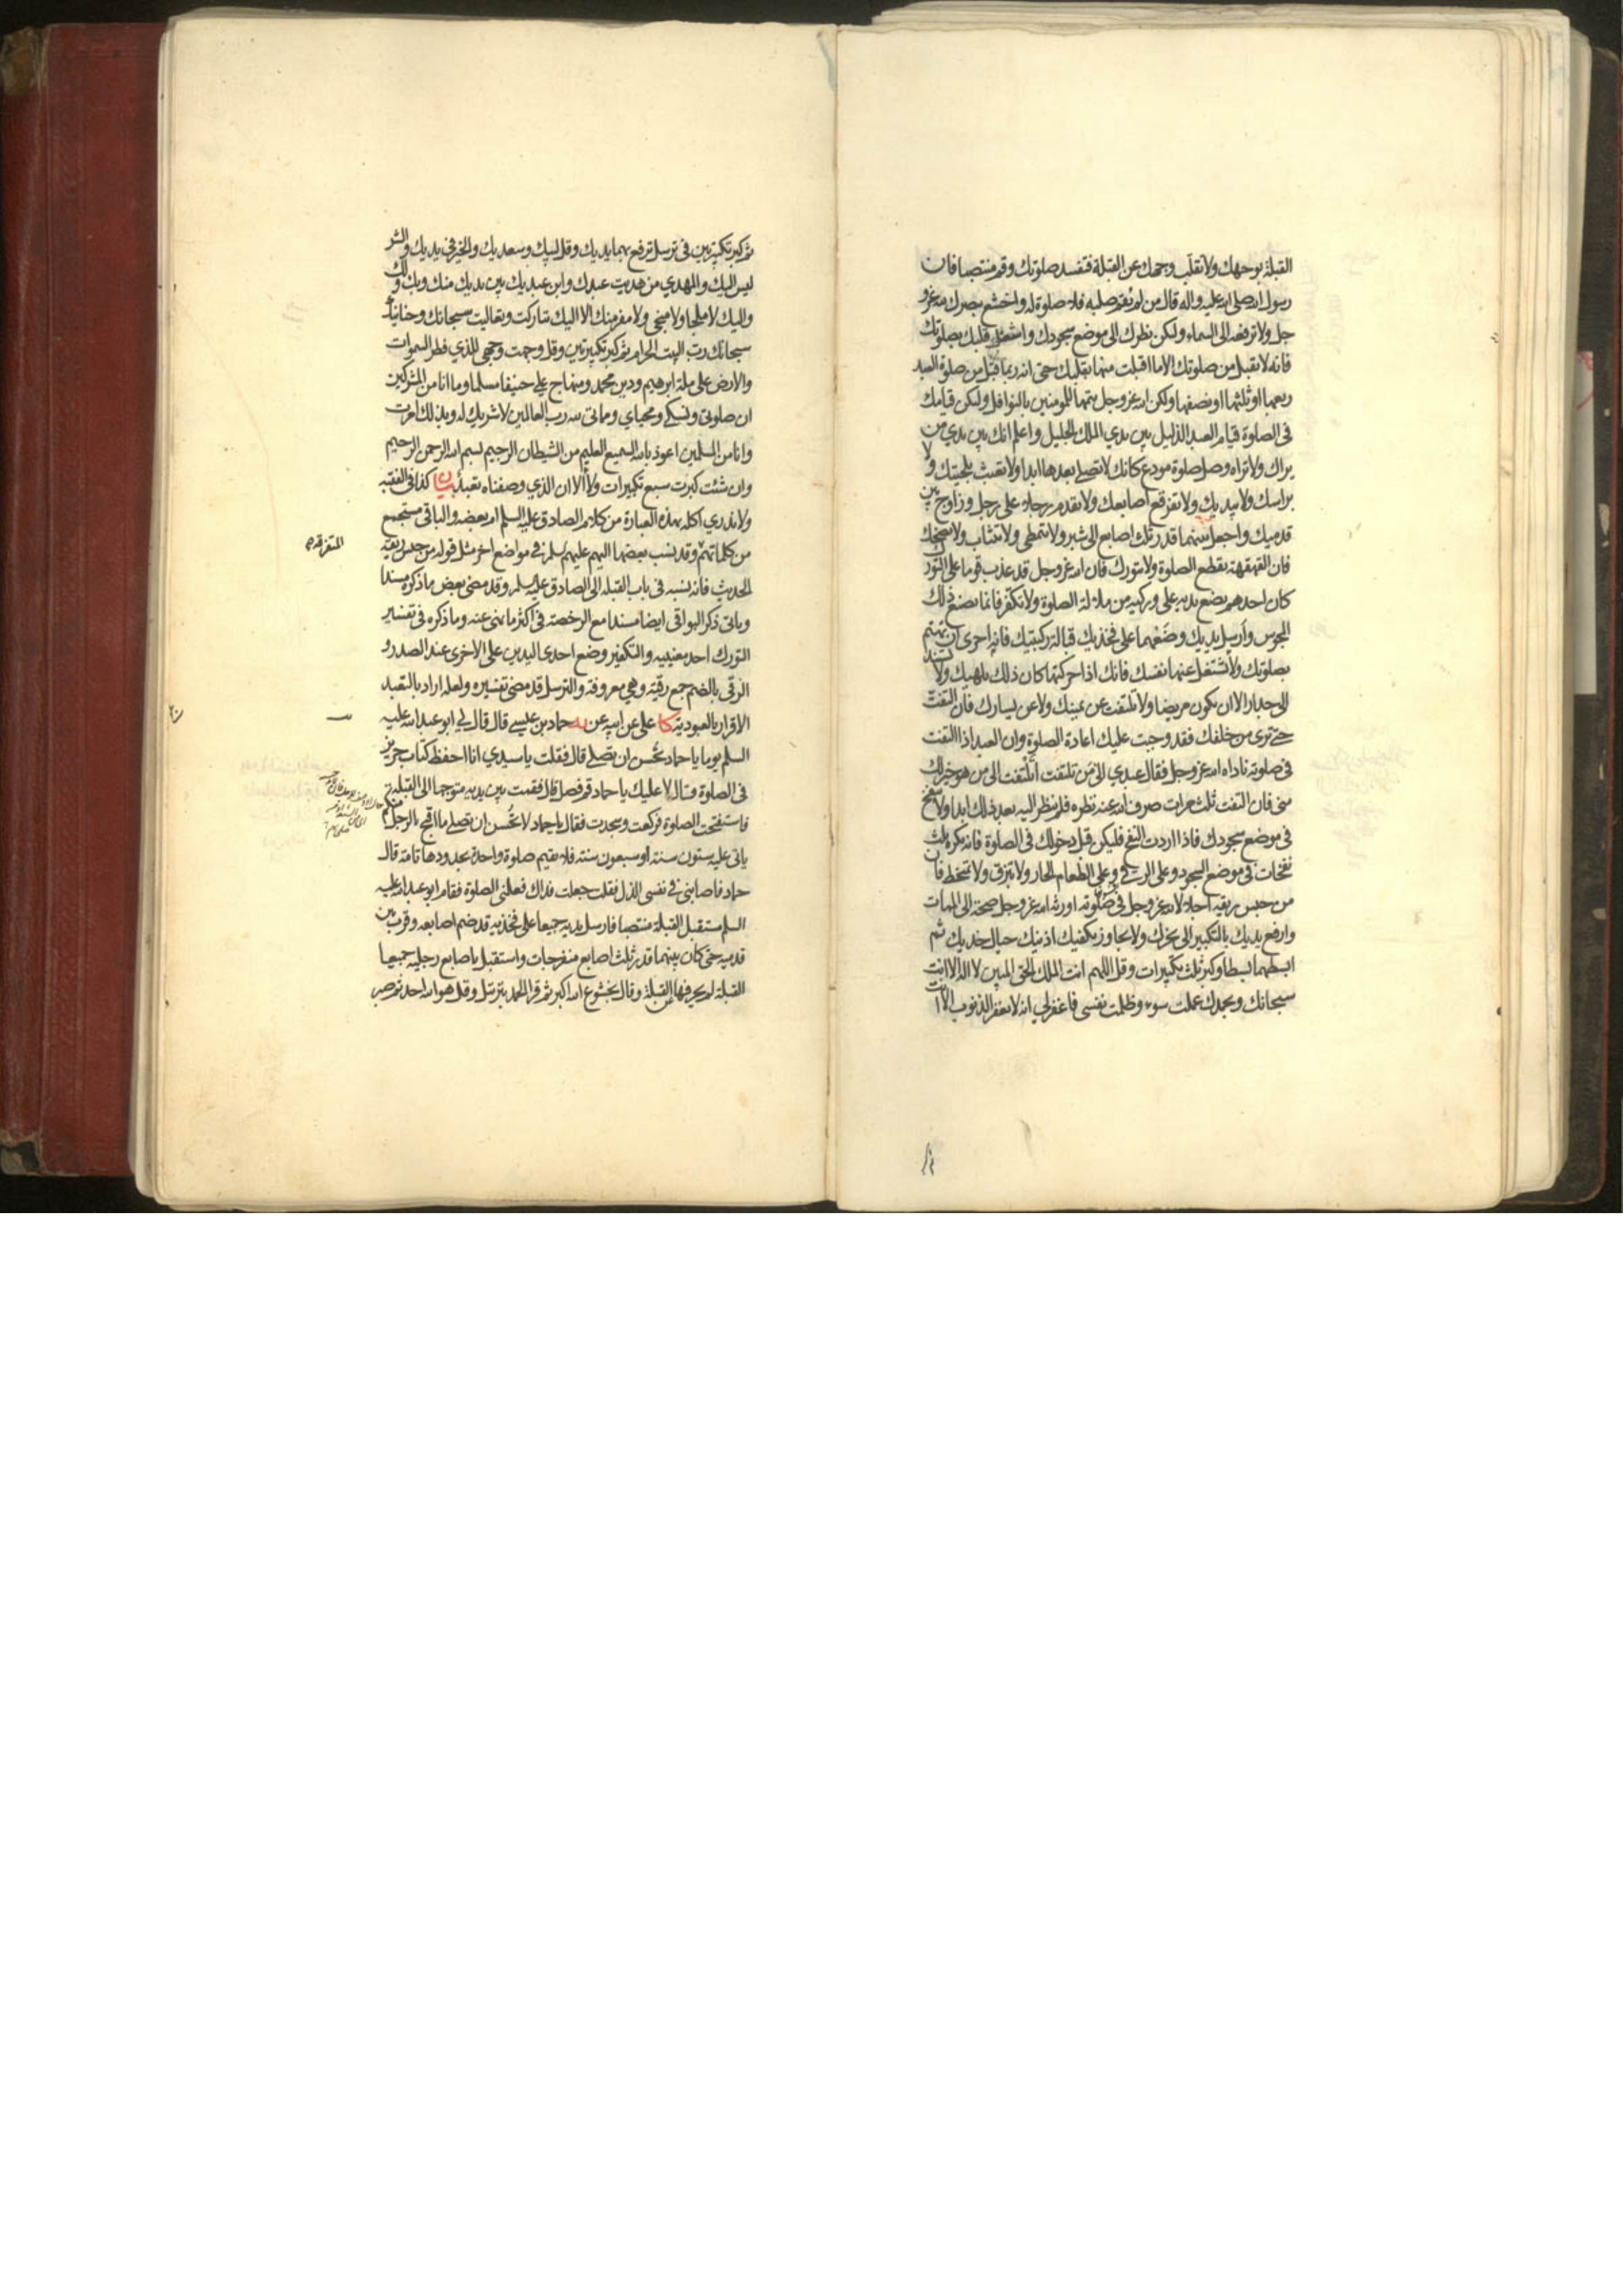 القبلة بوجهك ولا تقلب وجهك عن القبلة فتفسد صلوتك وقم منتصبا فان
رسول الله صلى الله عليه واله قال من لم يقم صلبه فلا صلوة له واخشع ببصرك لله عز و
جل ولا ترفعه الى السماء وليكن نظرك الى موضع سجودك واشغل قلبك بصلوتك
فانه لا تقبل من صلوتك الا ما اقبلت منها بقلبك حتى انه ربما قبل من صلوة العبد
ربعها او ثلثها او نصفها ولكن الله عز وجل يتمها للمومنين بالنوافل وليكن قيامك
فى الصلوة قيام العبد الذليل بين يدي الملك الجليل واعلم انك بين يدي من
يراك ولا تراه وصل صلوة مودع كانك لا تصلي بعدها ابدا ولا تعبث بلحيتك و لا
براسك ولا بيديك ولا تفرقع اصابعك ولا تقدم رجلا على رجل وزاوج بين
قدميك واجعل بينهما قدر ثلث اصابع الى شبر ولا تتمطى ولا تتثاب ولا تضحك
فان القهقهة تقطع الصلوة ولا تتورك فان الله عز وجل قد عذب قوما على التورك
كان احدهم يضع يديه على وركيه من ملالة الصلوة ولا تكفر فانما يصنع ذلك
المجوس وارسل يديك وضعهما على فخذيك قبالة ركبتيك فانه احرى ان تهتم
بصلوتك ولا تشتغل عنها نفسك فانك اذا حركتها كان ذلك يلهيك ولا تستند
الى جدار الا ان تكون مريضا ولا تلتفت عن يمينك ولا عن يسارك فان التفت
حتى ترى من خلفك فقد وجبت عليك اعادة الصلوة وان العبد اذا التفت
فى صلوته ناداه الله عز وجل فقال عبدي الى من تلتفت أتلتفت الى من هو خير لك
منى فان التفت ثلث مرات صرف الله عنه نظره فلم ينظر اليه بعد ذلك ابدا ولا تنفخ
فى موضع سجودك فاذا اردت النفخ فليكن قبل دخولك فى الصلوة فانه يكره ثلث
نفخات فى موضع السجود وعلى الرقى وعلى الطعام الحار ولا تبزق ولا تمخط فان
من حبس ريقه اجلالا لله عز وجل في صلوته اورثه الله عز وجل صحة الى الممات
وارفع يديك بالتكبير الى نحرك ولا تجاوز بكفيك اذنيك حيال خديك ثم
ابسطهما بسطا وكبر ثلث تكبيرات وقل اللهم انت الملك الحق المبين لا اله الا انت
سبحانك وبحمدك عملت سوء وظلمت نفسى فاغفرلي انه لا يغفر الذنوب الا انت
ثم كبر تكبيرتين فى ترسل ترفع بهما يديك وقل لبيك وسعديك والخير فى يديك والشر
ليس اليك والمهدي من هديت عبدك وابن عبديك بين يديك منك وبك ولك
واليك لا ملجا ولا منجى ولا مفر منك الا اليك تباركت وتعاليت سبحانك وحنانيك
سبحانك رب البيت الحرام ثم كبر تكبيرتين وقل وجهت وجهي للذي فطر السموات
والارض على ملة ابرهيم ودين محمد ومنهاج علي حنيفا مسلما وما انا من المشركين
ان صلوتى ونسكي ومحياي ومماتى لله رب العالمين لا شريك له وبذلك امرت
وانا من المسلمين اعوذ بالله السميع العليم من الشيطان الرجيم بسم الله الرحمن الرحيم
وان شئت كبرت سبع تكبيرات ولاأ الا ان الذي وصفناه تعبد بيان كذا فى الفقيه
ولا ندري اكله بهذه العبارة من كلام الصادق عليه السلم ام بعضه والباقى مستجمع
من كلماتهم وقد نسب بعضها اليهم عليهم السلم فى مواضع اخر مثل قوله من حبس ريقه
الحديث فانه نسبه فى باب القبلة الى الصادق عليه السلم وقد مضى بعض ما ذكره مسندا
وياتى ذكر البواقى ايضا مسندا مع الرخصة فى اكثر ما نهى عنه وما ذكره فى تفسير
التورك احد معنييه والتكفير وضع احدى اليدين على الاخرى عند الصدر و
الرقى بالضم جمع رقية وهى معروفة والترسل قد مضى تفسيره ولعله اراد بالتعبد
الاقرار بالعبودية كا على عن ابيه عن يه حماد بن عيسى قال قال لي ابو عبد الله عليه
السلم يوما يا حماد تحسن ان تصلى قال فقلت يا سيدي انا احفظ كتاب حريز
فى الصلوة فقال لا عليك يا حماد قم فصل قال فقمت بين يديه متوجها الى القبلة
فاستفتحت الصلوة فركعت وسجدت فقال يا حماد لا تحسن ان تصلى ما اقبح بالرجل منكم
ياتى عليه ستون سنة او سبعون سنة فلا يقيم صلوة واحدة بحدودها تامة قال
حماد فاصابنى فى نفسى الذل فقلت جعلت فداك فعلمنى الصلوة فقام ابو عبد الله عليه
السلم مستقبل القبلة منتصبا فارسل يديه جميعا على فخذيه قد ضم اصابعه وقرب بين
قدميه حتى كان بينهما قدر ثلث اصابع منفرجات واستقبل باصابع رجليه جميعا
القبلة لم يحرفها عن القبلة وقال بخشوع الله اكبر ثم قرا الحمد بترتيل وقل هو الله احد ثم صبر